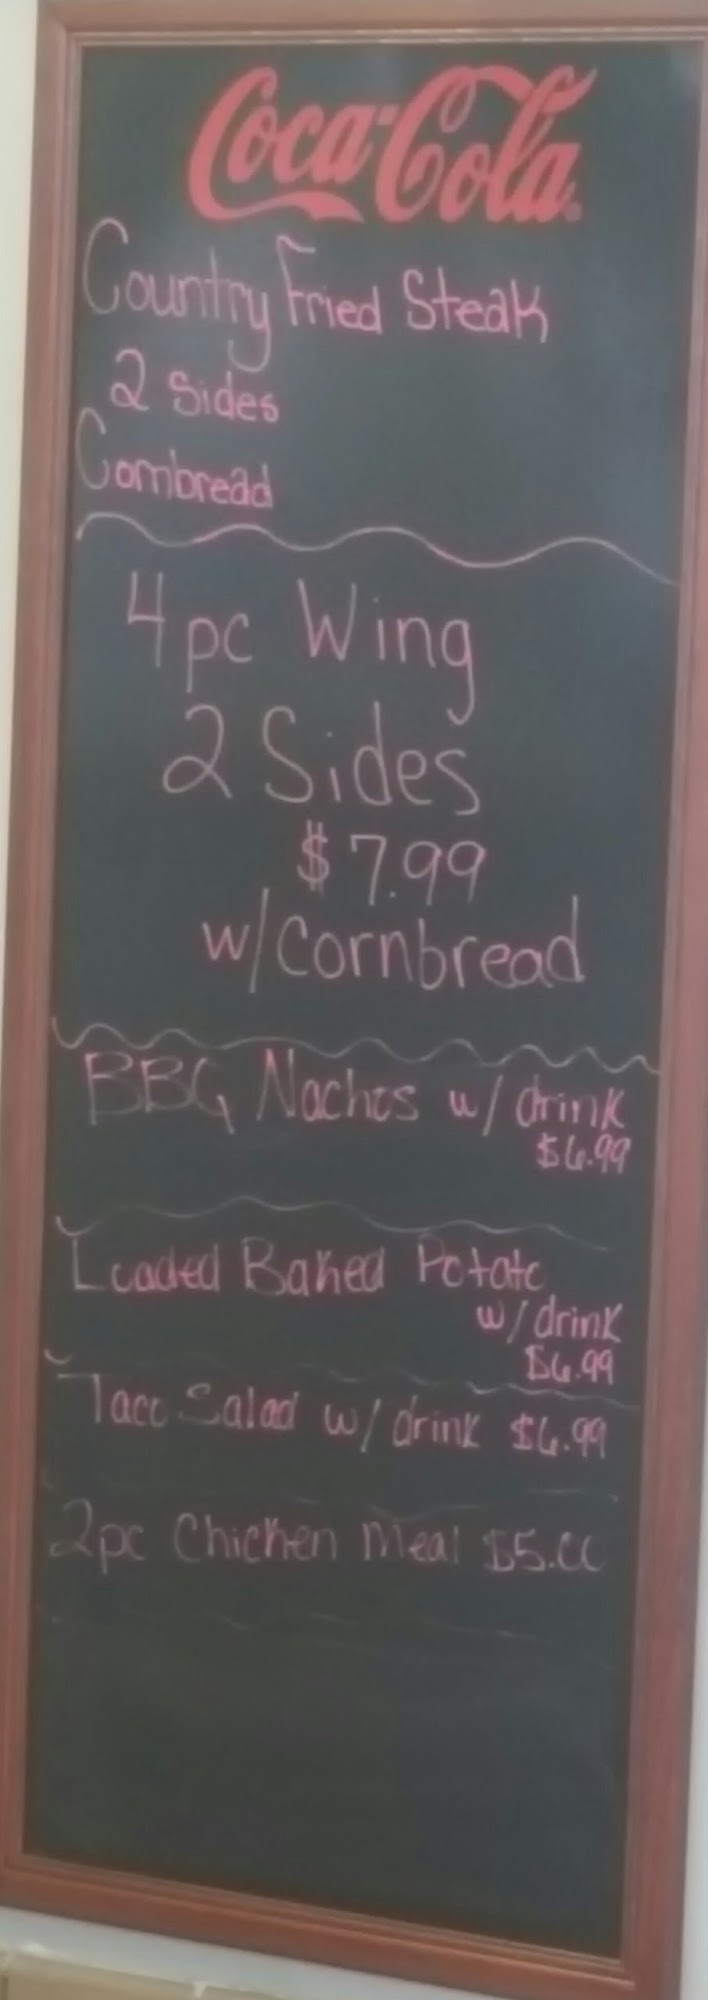 Coca-Cola
Country Fried Steak
2 Sides
Cornbread
4pc Wing
2 Sides
$7.99
w/Cornbread
BBQ Nachos w/ drink
$6.99
Loaded Baked Potato
w/ drink
$6.99
Taco Salad w/ drink $6.99
2pc Chicken Meal $5.00